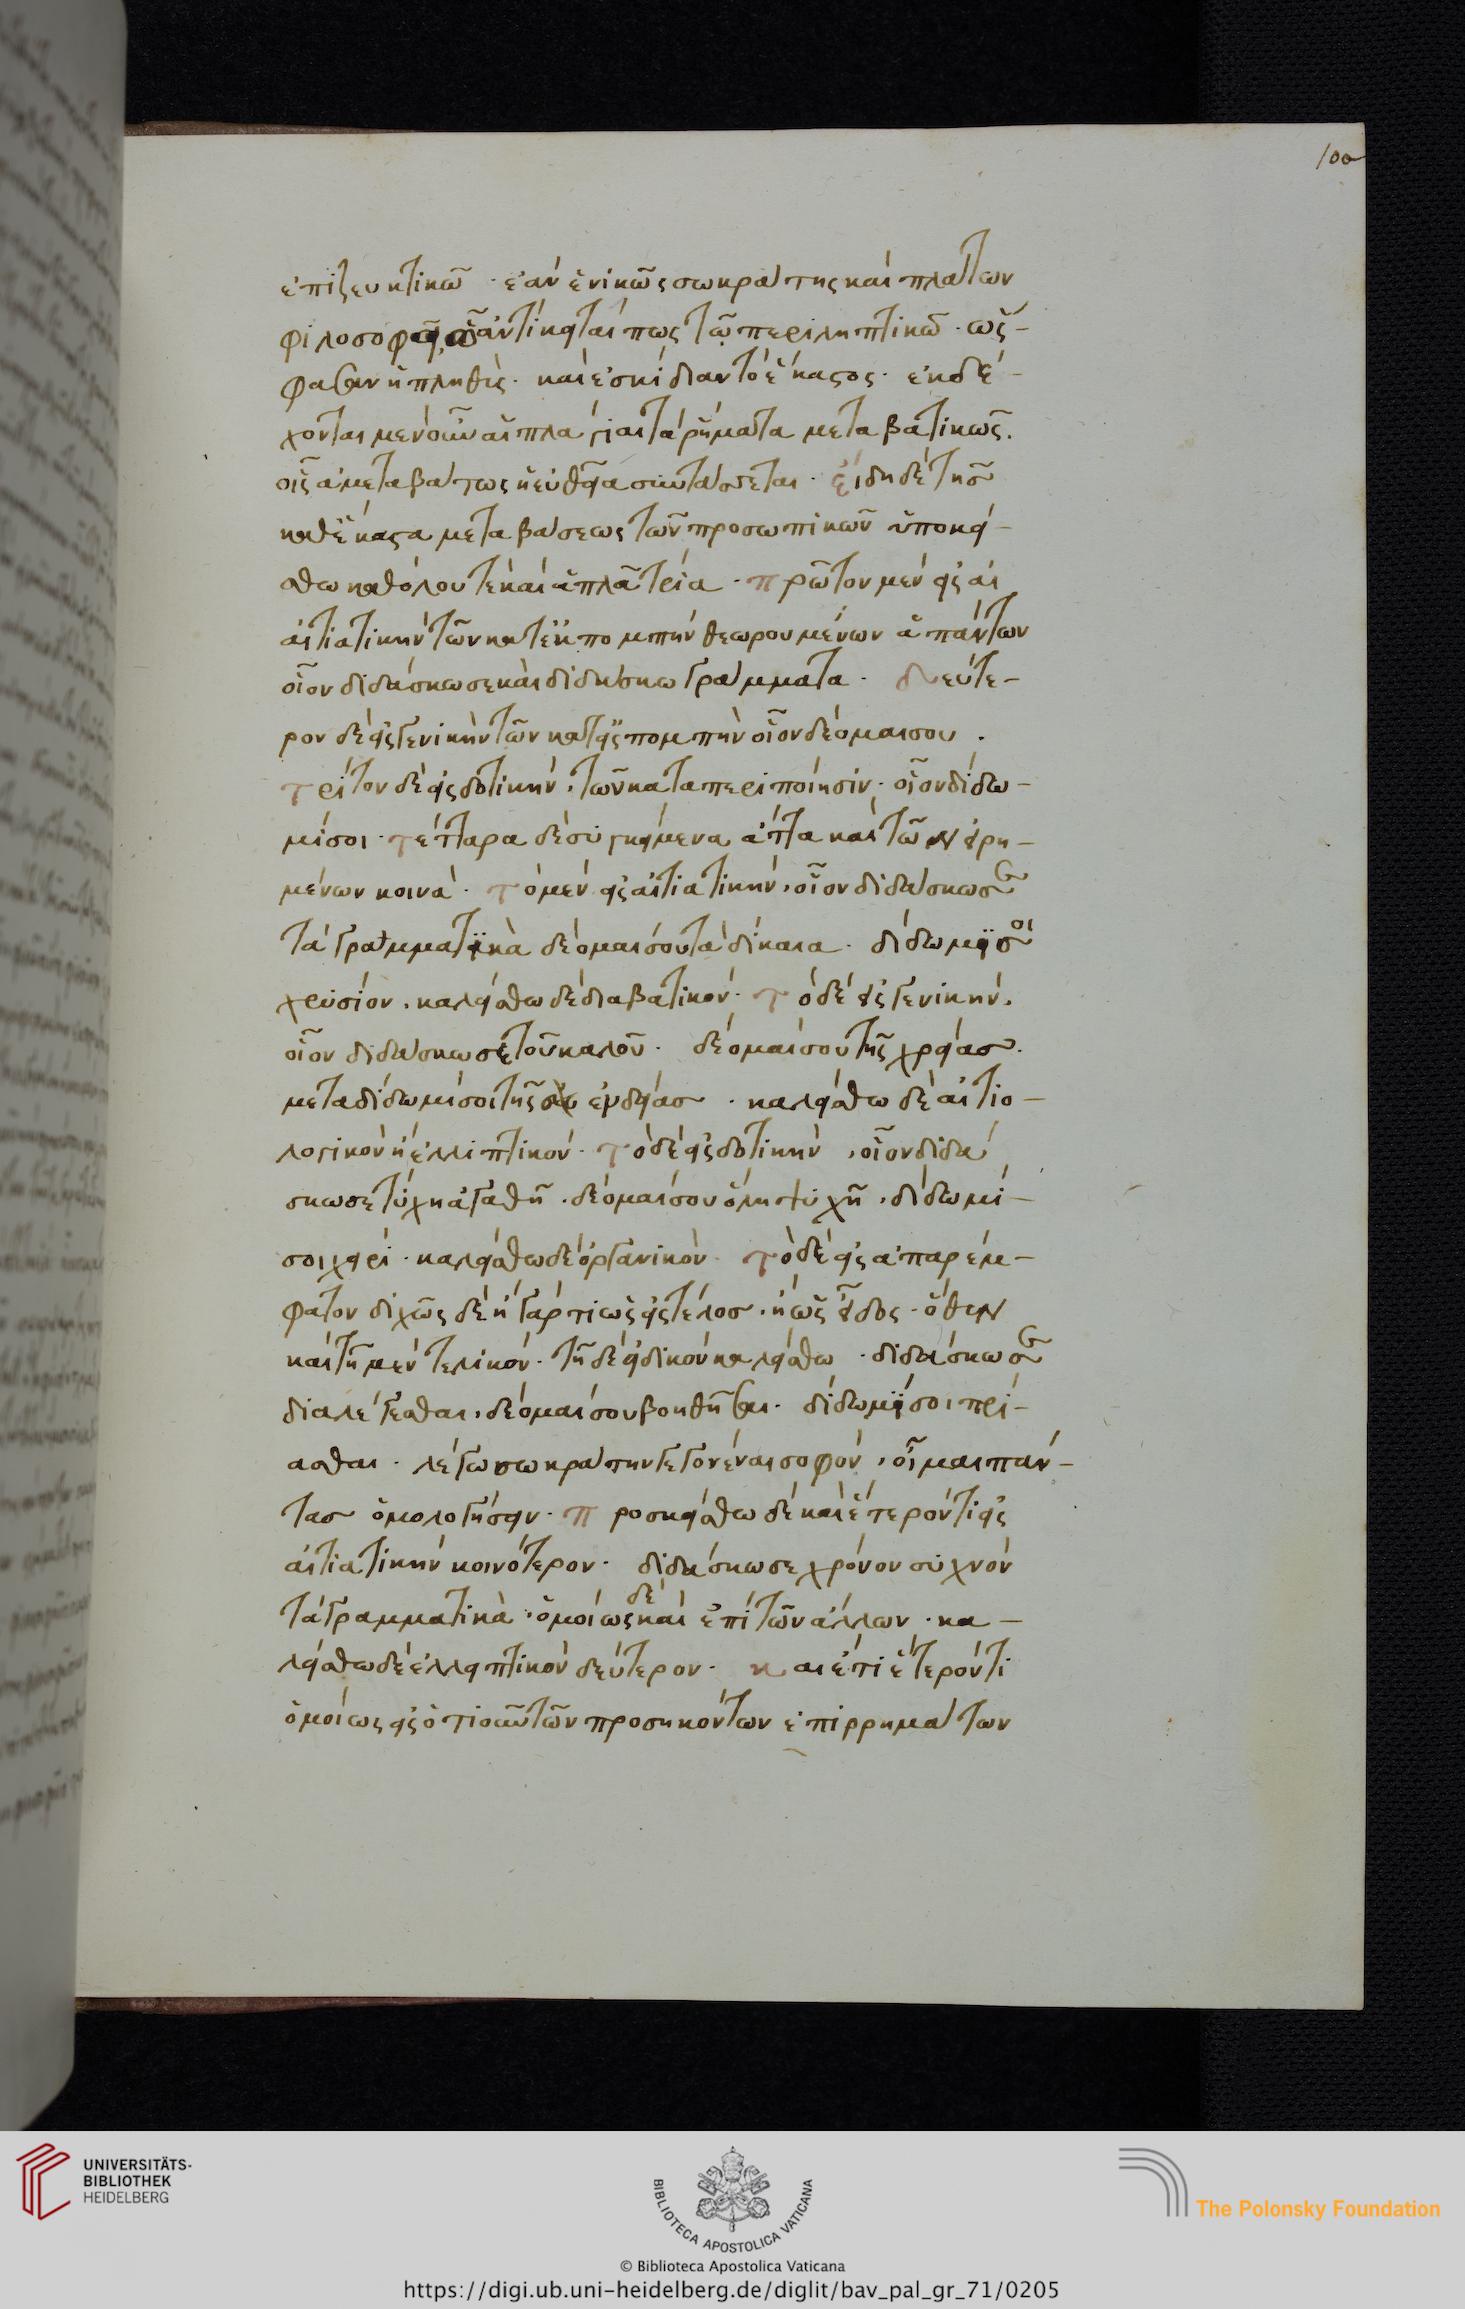 100
ἐπιζευκτικῶ · ἐὰν ἑνικῶς σωκράτης καὶ πλάτων
φιλοσοφεῖ, ἀντίκειται πως τῶ περιληπτικῶ · ὡς
φασὶν ἡ πληθὺς · καὶ ἐσκίδναντο ἕκαστος · ἐκδέ-
χονται μὲν οὖν αἱ πλάγιαι τὰ ῥήματα μεταβατικῶς.
οἷς ἀμεταβάτως ἡ εὐθεῖα συντάσσεται · εἴδη δὲ τῆς
καθέκαστα μεταβάσεως τῶν προσωπικῶν ὑποκεί-
σθω καθόλου τὲ καὶ ἁπλᾶ τρία · πρῶτον μὲν εἰς αἰ
αἰτιατικὴν τῶν κατ' ἐκπομπὴν θεωρουμένων ἁπάντων
οἷον διδάσκω σε καὶ διδάσκω γράμματα · δεύτε-
ρον δὲ εἰς γενικὴν τῶν κατ' εἰσπομπὴν οἷον δέομαι σου ·
τρίτον δὲ εἰς δοτικὴν · τῶν κατὰ περιποίησιν · οἷον δίδω-
μί σοι · τέτταρα δὲ συγκείμενα ἄττα καὶ τῶν εἰρη-
μένων κοινὰ · τὸ μὲν εἰς αἰτιατικὴν · οἷον διδάσκω σε
τὰ γραμματικὰ δέομαι σου τὰ δίκαια · δίδωμί σοι
χρυσίον · καλείσθω δὲ διαβατικόν · τὸ δὲ εἰς γενικὴν ·
οἷον διδάσκω σε τοῦ καλοῦ · δέομαι σου τῆς χρείας ·
μεταδίδωμί σοι τῆς ἐνδείας · καλείσθω δὲ αἰτιο-
λογικὸν ἢ ἐλλιπτικόν · τὸ δὲ εἰς δοτικὴν · οἷον διδά
σκω σε τύχη ἀγαθῆ · δέομαι σου ὅλη ψυχῆ · δίδωμί-
σοι χειρί · καλείσθω δὲ ὀργανικὸν · τὸ δὲ εἰς ἀπαρέμ-
φατον διχῶς δέ ἢ γάρ τι ὡς εἰς τέλος · ἢ ὡς εἶδος · ὅθεν
καὶ τῆ μὲν τελικόν · τῆ δὲ εἰδικὸν καλείσθω · διδάσκω σε
διαλέγεσθαι · δέομαι σου βοηθῆσαι · δίδωμί σοι πρί-
ασθαι · λέγω σωκράτην γεγονέναι σοφόν · οἶμαι πάν-
τας ὁμολογήσειν · προσκείσθω δὲ καὶ ἕτερόν τι εἰς
αἰτιατικὴν κοινότερον · διδάσκω σε χρόνον συχνὸν
τὰ γραμματικὰ · ὁμοίως δὲ καὶ ἐπὶ τῶν ἄλλων · κα-
λείσθω δὲ ἐλλειπτικὸν δεύτερον · καὶ ἐπὶ ἕτερόν τι
ὁμοίως εἰς ὁτιοῦν τῶν προσηκόντων ἐπιρρημάτων
UNIVERSITÄTS-
BIBLIOTHEK
HEIDELBERG
BIBLIOTECA APOSTOLICA VATICANA
The Polonsky Foundation
© Biblioteca Apostolica Vaticana
https://digi.ub.uni-heidelberg.de/diglit/bav_pal_gr_71/0205